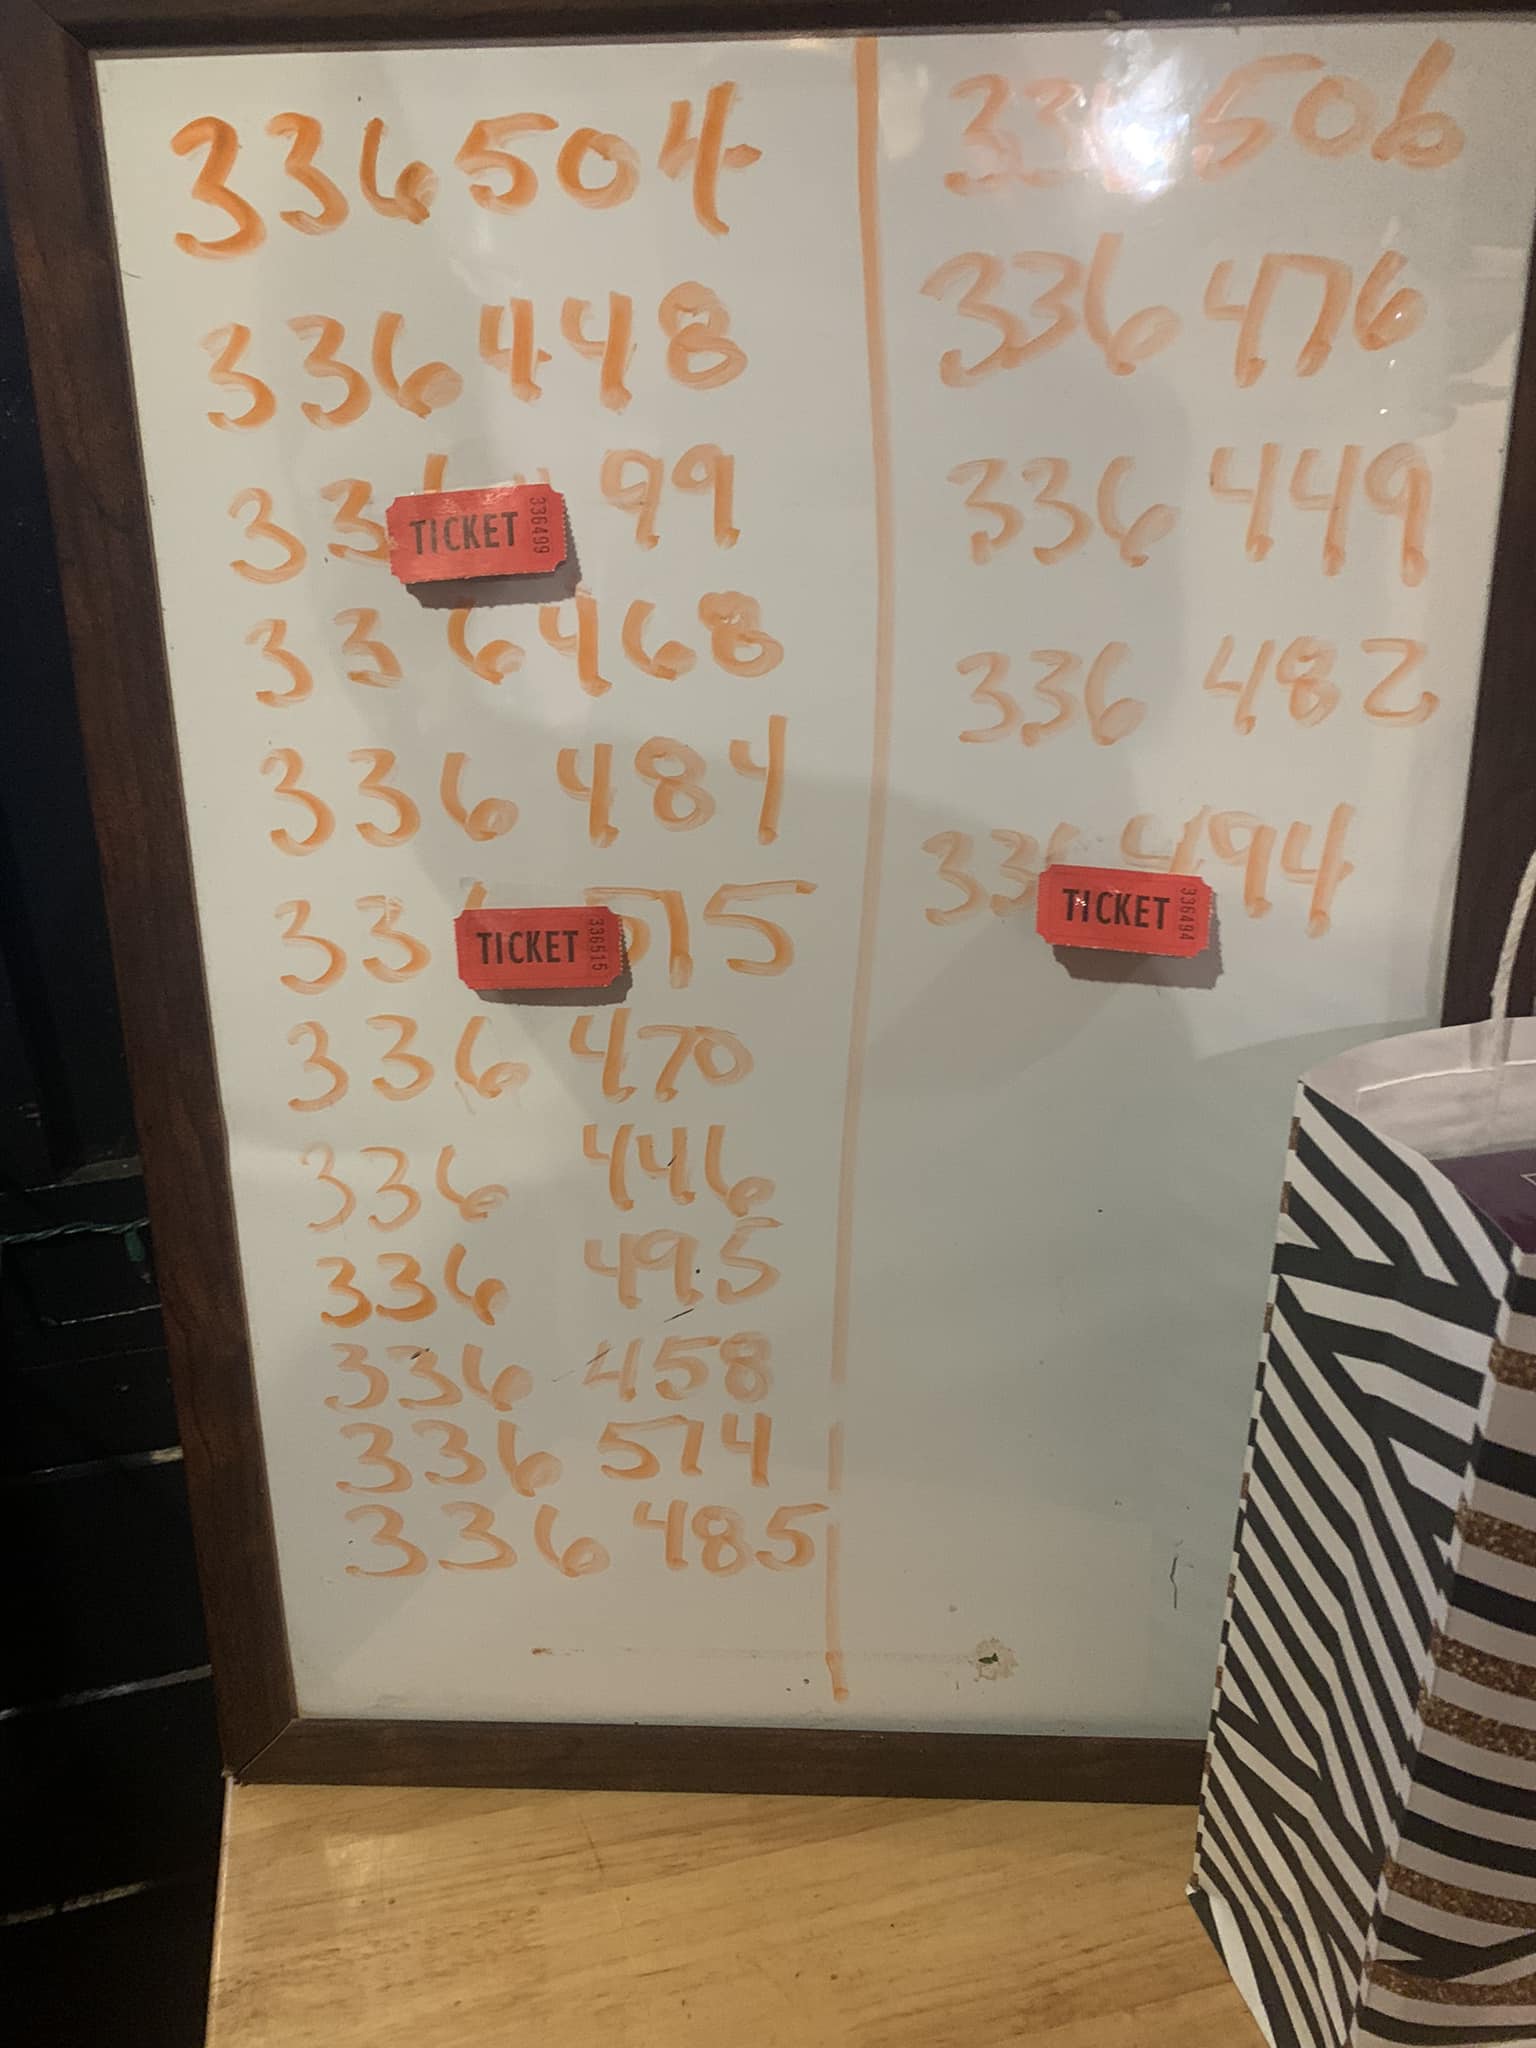 336504
336448
336499
TICKET 336499
336468
336484
336515
TICKET 336515
336 470
336 446
336 495
336 458
336 514
336 485
336506
336 476
336 449
336 482
336494
TICKET 336494